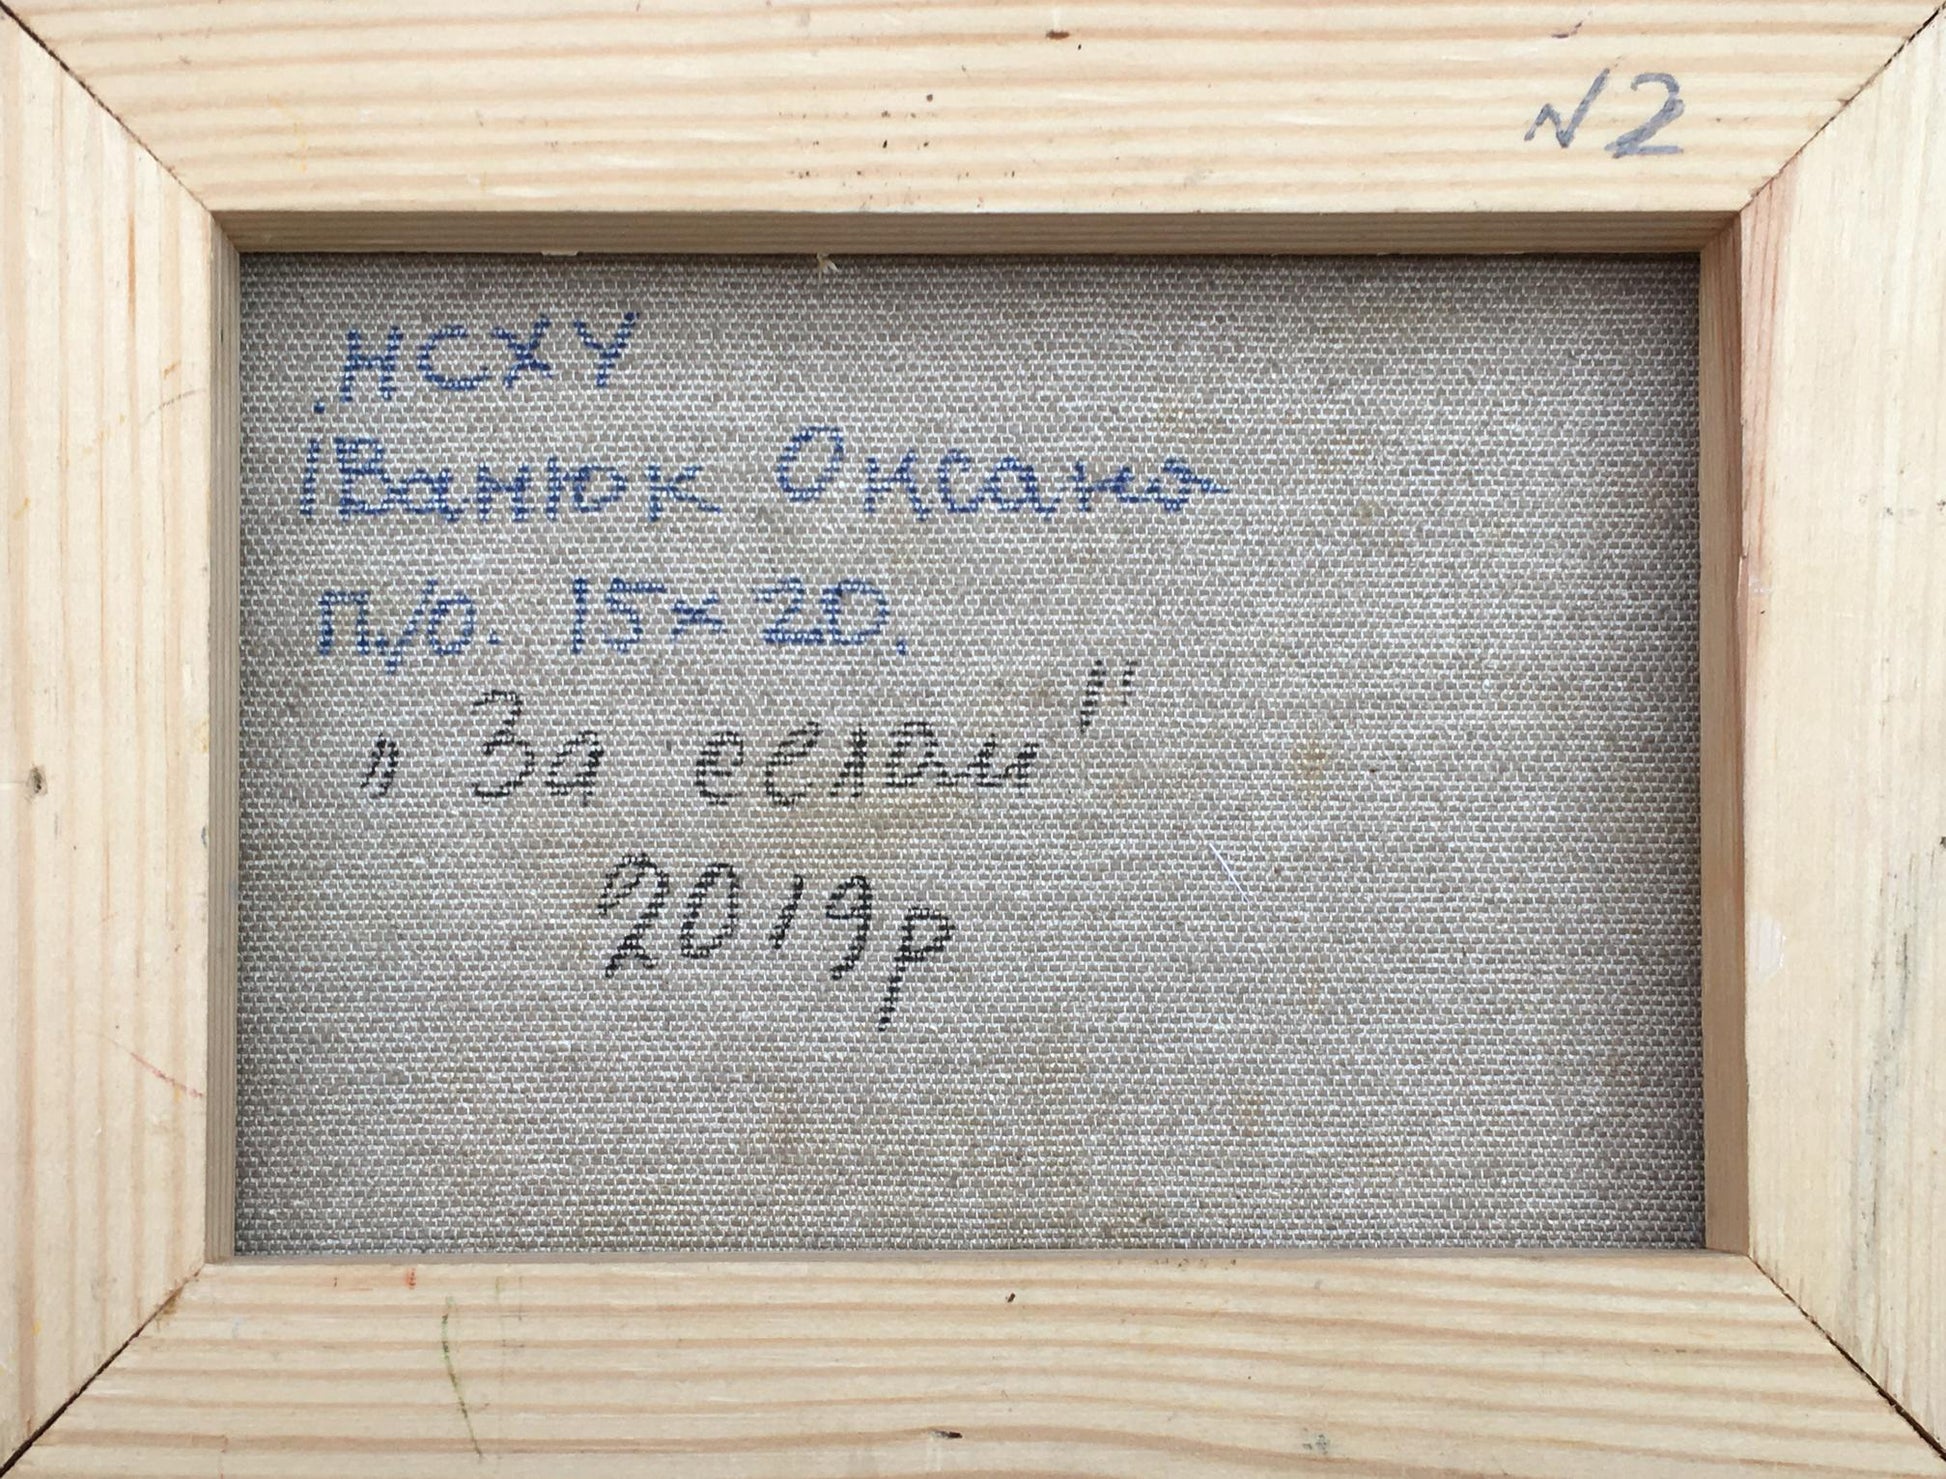 N2
НСХУ
Іванюк Оксана
п/о. 15×20.
„За селом"
2019р